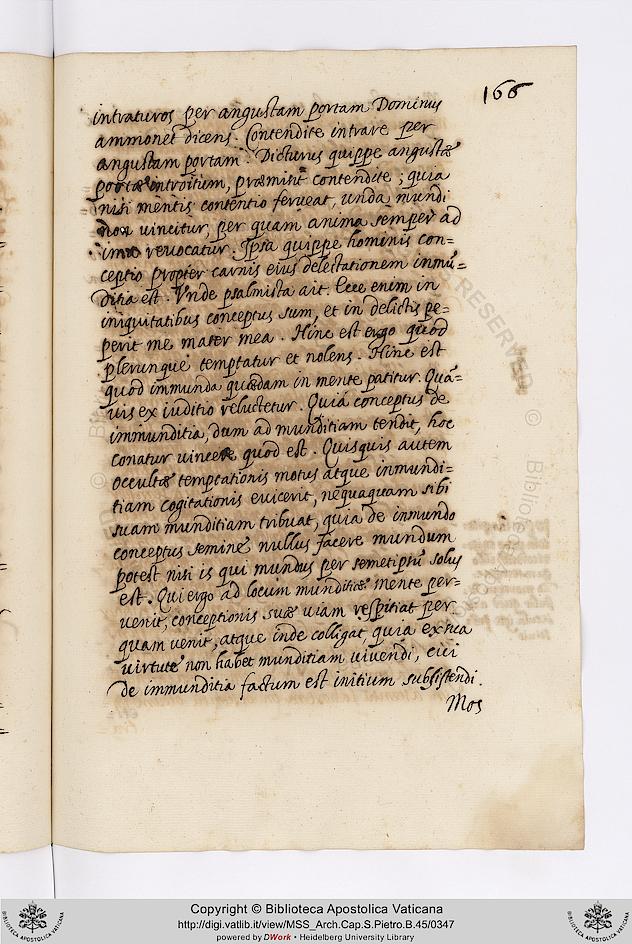 166
intraturos per angustam portam Dominus
ammonet dicens. Contendite intrare per
angustam portam. Dicturus quippe angustæ
portæ introitum, præmisit contendite; quia
nisi mentis contentio ferueat, unda mundi
non vincitur, per quam anima semper ad
ima revocatur. Ipsa quippe hominis con=
ceptio propter carnis eius delectationem inmū=
ditia est. Vnde psalmista ait. Ecce enim in
iniquitatibus conceptus sum, et in delictis pe=
perit me mater mea. Hinc est ergo quod
plerunque temptatur et nolens. Hinc est
quod immunda quædam in mente patitur. Quā=
uis ex iuditio reluctetur. Quia conceptus de
immunditia, dum ad munditiam tendit, hoc
conatur vincere quod est. Quisquis autem
occultæ temptationis motus atque inmundi=
tiam cogitationis euicerit, nequaquam sibi
suam munditiam tribuat, quia de inmundo
conceptus semine nullus facere mundum
potest nisi is qui mundus per semetipsū solus
est. Qui ergo ad locum munditiæ mente per=
venit, conceptionis suæ uiam respitiat per
quam venit, atque inde colligat, quia ex sua
virtute non habet munditiam vivendi, cui
de immunditia factum est initium subsistendi.
Mos
Copyright © Biblioteca Apostolica Vaticana
http://digi.vatlib.it/view/MSS_Arch.Cap.S.Pietro.B.45/0347
powered by DWork • Heidelberg University Library